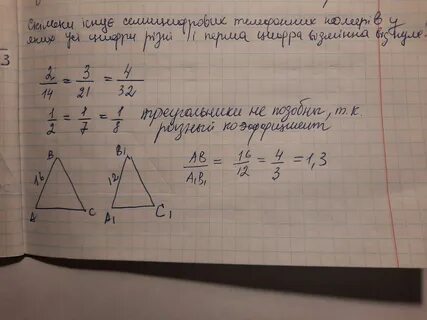 Скільки існує семицифрових телефонних номерів у
яких усі цифри різні і перша цифра відмінна від нуля
3
2/14 = 3/21 = 4/32
1/2 = 1/7 = 1/8 треугольники не подобны, т.к.
разный коэффициент
B B₁
16 12 AB/A₁B₁ = 16/12 = 4/3 = 1,3
A C A₁ C₁